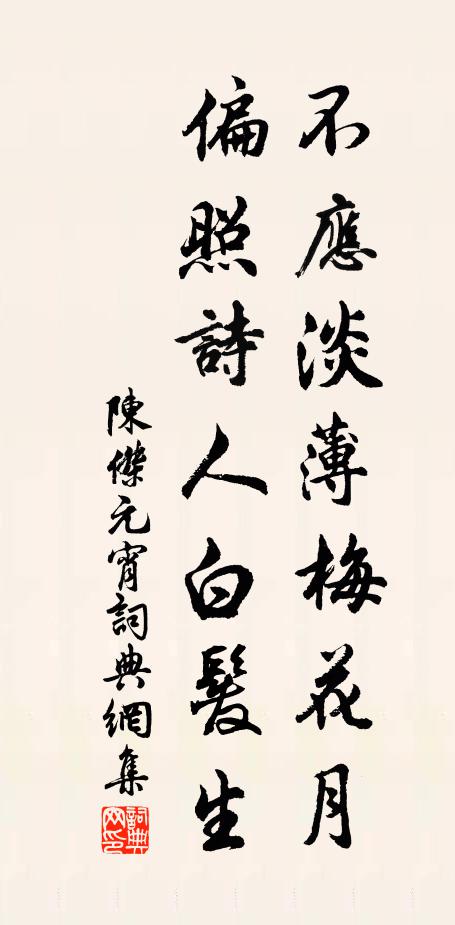 不應淡薄梅花月
偏照詩人白髮生
陳傑元宵詞典網集
詞典网印